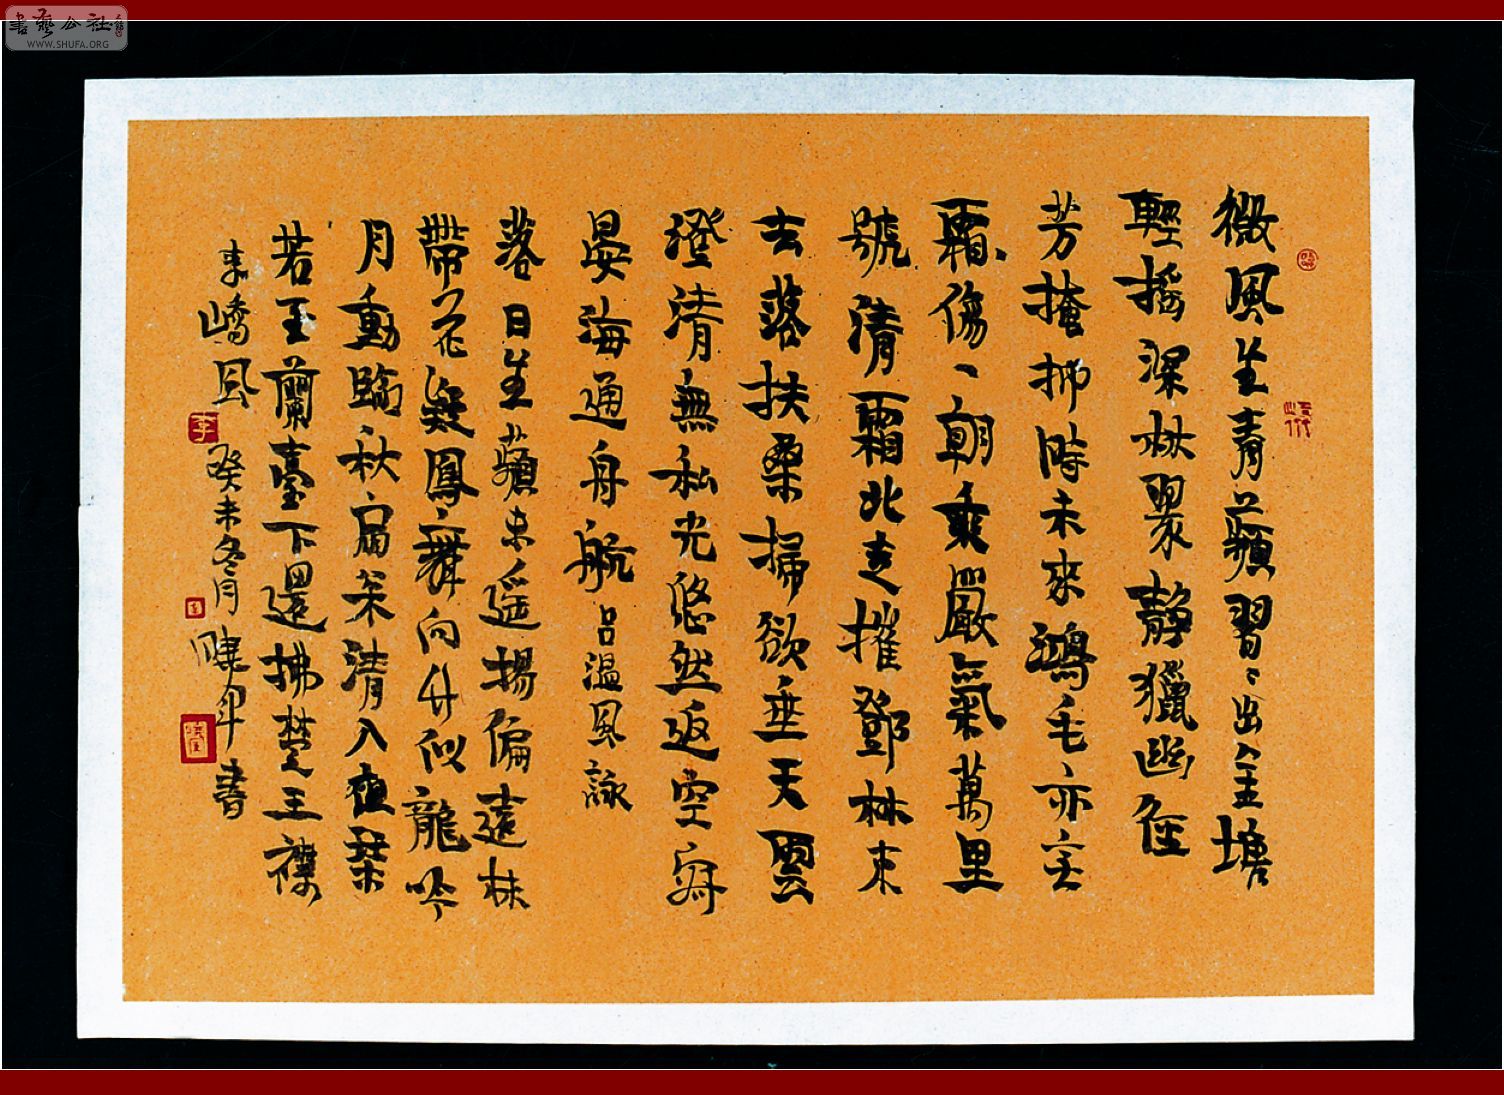 書藝公社
WWW.SHUFA.ORG
微風生青蘋習〻出金塘
輕搖深林翠靜獵幽徑
芳掩抑時未來鴻毛亦无
霜傷一朝乘嚴氣萬里
號清霜北走摧鄧林東
去落扶桑掃欲垂天雲
澄清無私光悠然返空寂
晏海通舟航 吕温風詠
落日生蘋末遥揚偏遠林
帶花疑鳳舞向竹似龍吟
月動臨秋扇松清入夜琴
若至蘭臺下還拂楚王襟
李嶠風 癸未冬月曉軍書